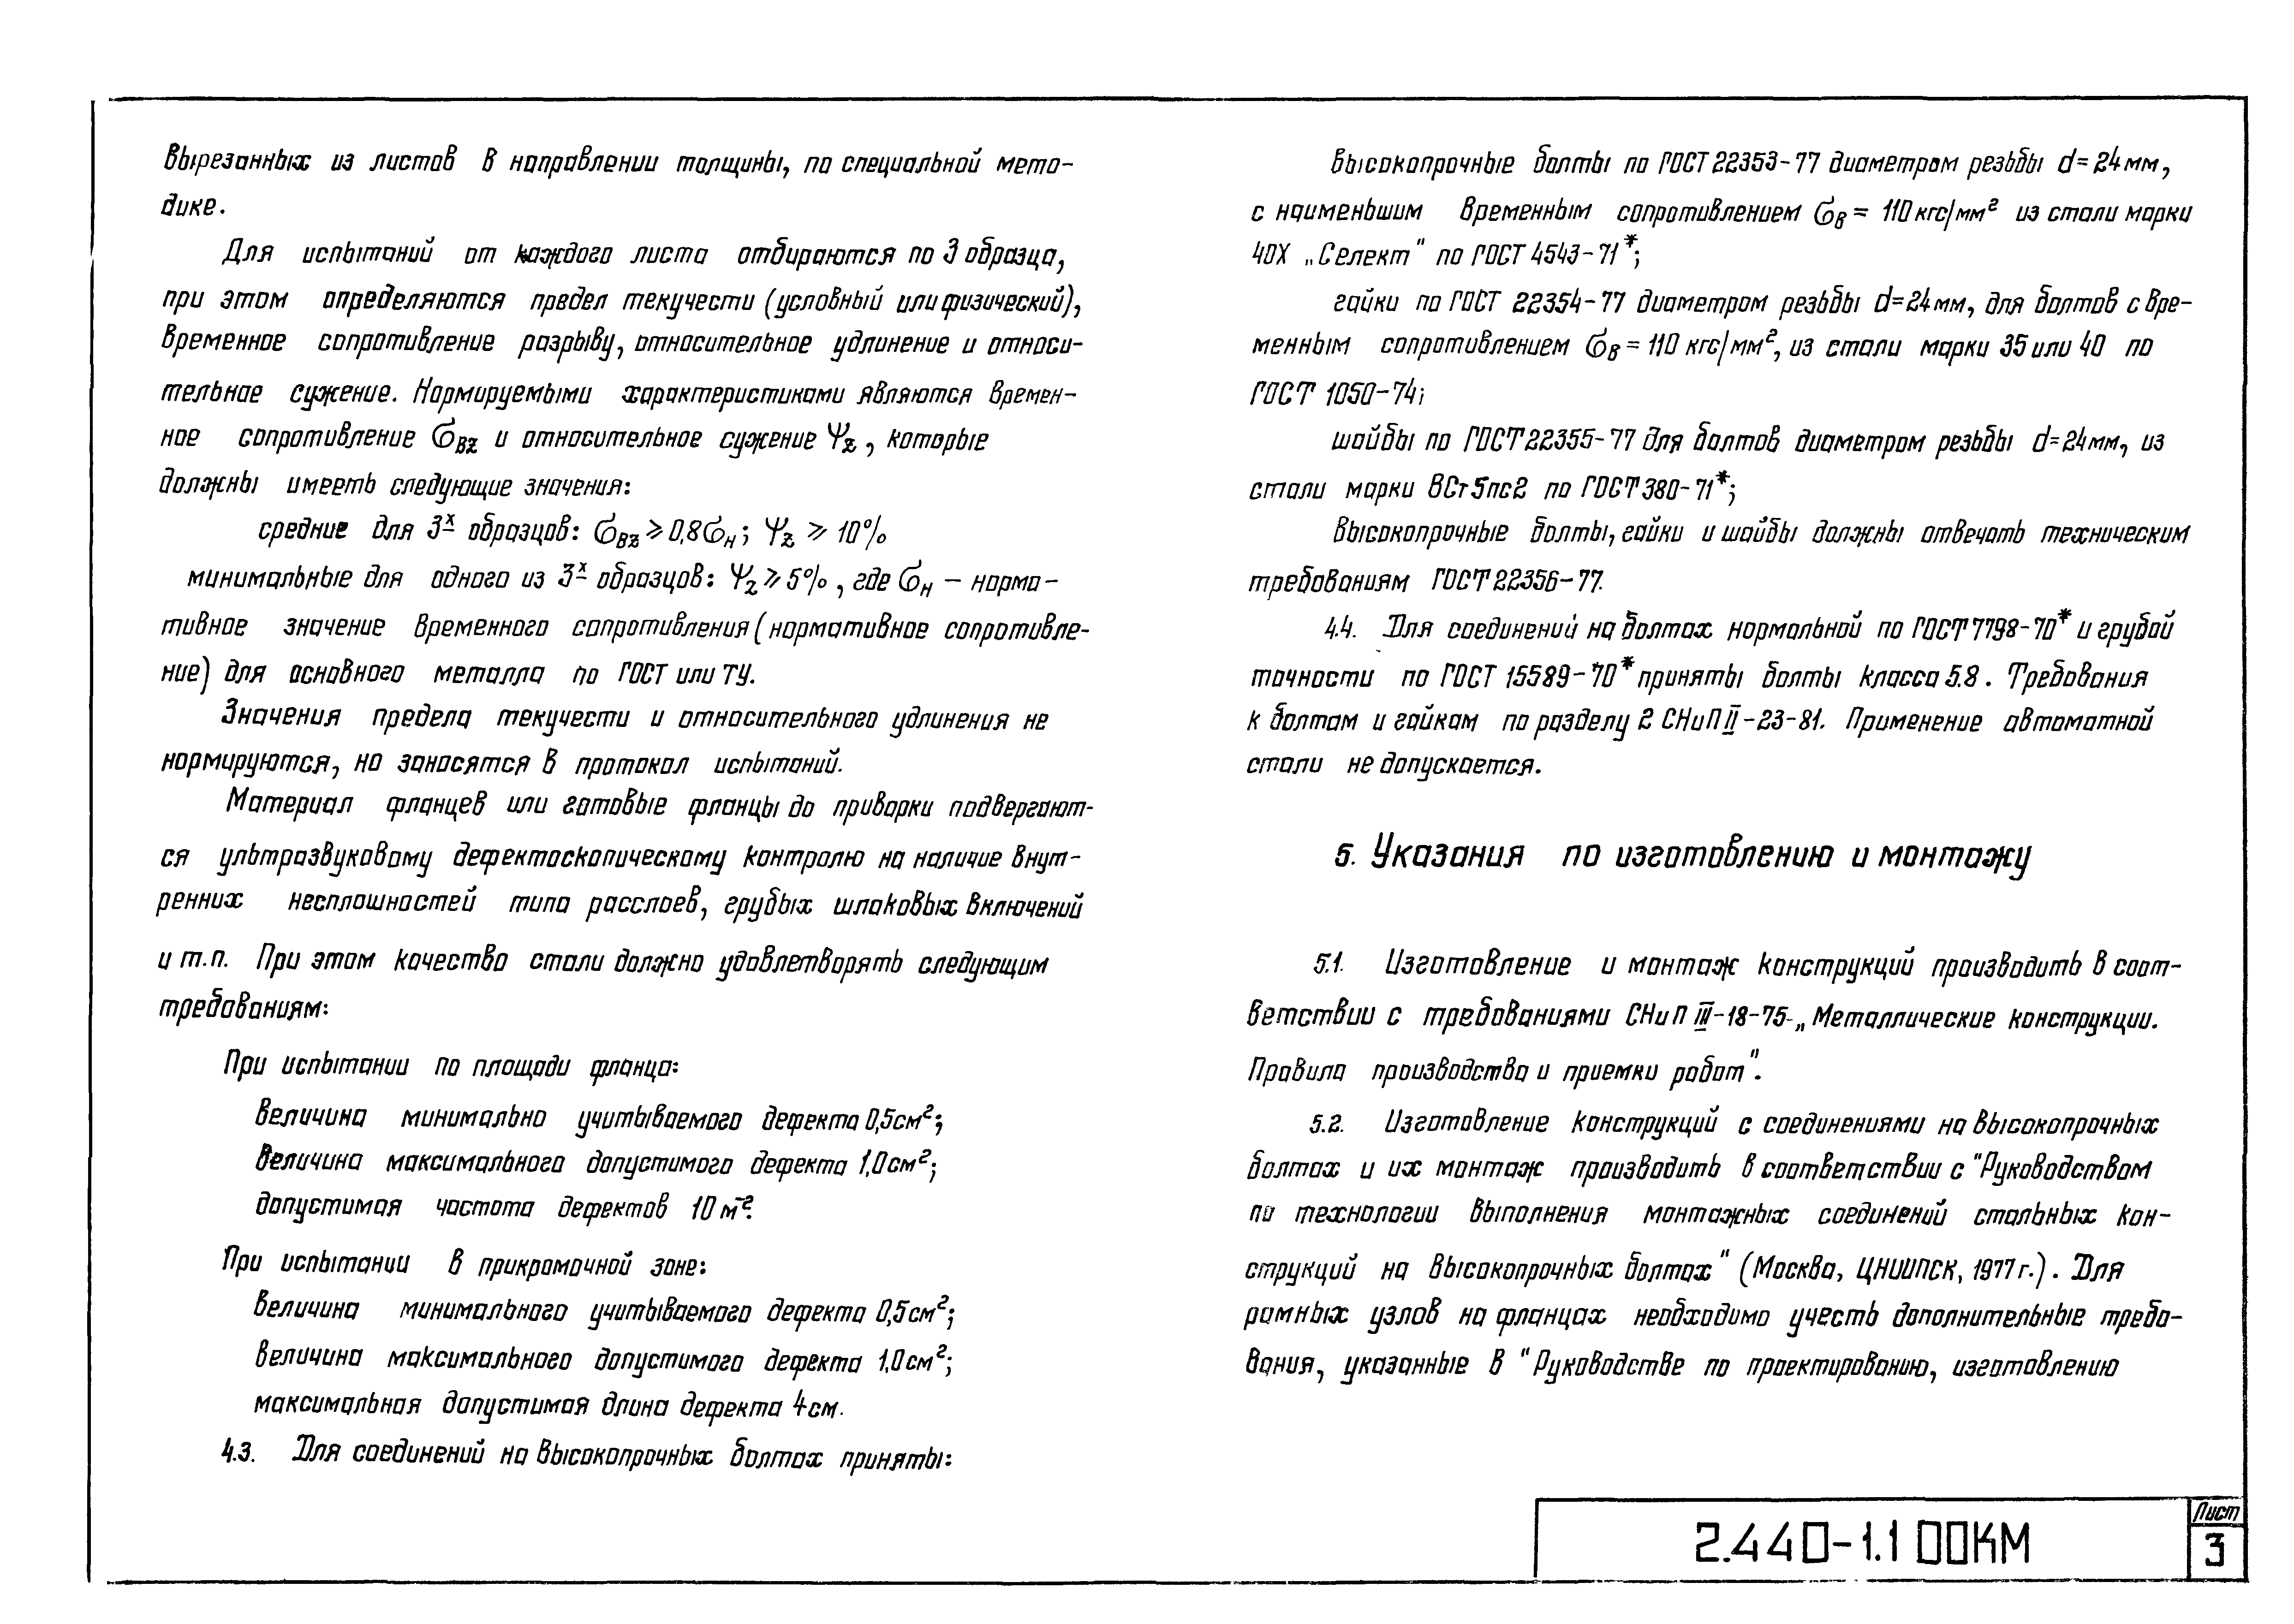 вырезанных из листов в направлении толщины, по специальной мето-
дике.
Для испытаний от каждого листа отбираются по 3 образца,
при этом определяются предел текучести (условный или физический),
временное сопротивление разрыву, относительное удлинение и относи-
тельное сужение. Нормируемыми характеристиками являются времен-
ное сопротивление σвz и относительное сужение Ψz, которые
должны иметь следующие значения:
средние для 3х образцов: σвz ≥ 0,8σн; Ψz ≥ 10%
минимальные для одного из 3х образцов: Ψz ≥ 5%, где σн – норма-
тивное значение временного сопротивления (нормативное сопротивле-
ние) для основного металла по ГОСТ или ТУ.
Значения предела текучести и относительного удлинения не
нормируются, но заносятся в протокол испытаний.
Материал фланцев или готовые фланцы до приварки подвергают-
ся ультразвуковому дефектоскопическому контролю на наличие внут-
ренних несплошностей типа расслоев, грубых шлаковых включений
и т.п. При этом качество стали должно удовлетворять следующим
требованиям:
При испытании по площади фланца:
величина минимально учитываемого дефекта 0,5см²;
величина максимального допустимого дефекта 1,0см²;
допустимая частота дефектов 10 м⁻².
При испытании в прикромочной зоне:
величина минимального учитываемого дефекта 0,5см²;
величина максимального допустимого дефекта 1,0см²;
максимальная допустимая длина дефекта 4см.
4.3. Для соединений на высокопрочных болтах приняты:
высокопрочные болты по ГОСТ 22353-77 диаметром резьбы d=24мм,
с наименьшим временным сопротивлением σв = 110 кгс/мм² из стали марки
40Х „Селект" по ГОСТ 4543-71*;
гайки по ГОСТ 22354-77 диаметром резьбы d=24мм, для болтов с вре-
менным сопротивлением σв = 110 кгс/мм², из стали марки 35 или 40 по
ГОСТ 1050-74;
шайбы по ГОСТ 22355-77 для болтов диаметром резьбы d=24мм, из
стали марки ВСт5пс2 по ГОСТ 380-71*;
Высокопрочные болты, гайки и шайбы должны отвечать техническим
требованиям ГОСТ 22356-77.
4.4. Для соединений на болтах нормальной по ГОСТ 7798-70* и грубой
точности по ГОСТ 15589-70* приняты болты класса 5.8. Требования
к болтам и гайкам по разделу 2 СНиП II-23-81. Применение автоматной
стали не допускается.
5. Указания по изготовлению и монтажу
5.1. Изготовление и монтаж конструкций производить в соот-
ветствии с требованиями СНиП III-18-75 „Металлические конструкции.
Правила производства и приемки работ".
5.2. Изготовление конструкций с соединениями на высокопрочных
болтах и их монтаж производить в соответствии с "Руководством
по технологии выполнения монтажных соединений стальных кон-
струкций на высокопрочных болтах" (Москва, ЦНИИПСК, 1977 г.). Для
рамных узлов на фланцах необходимо учесть дополнительные требо-
вания, указанные в "Руководстве по проектированию, изготовлению
2.440-1.1 00КМ
Лист
3